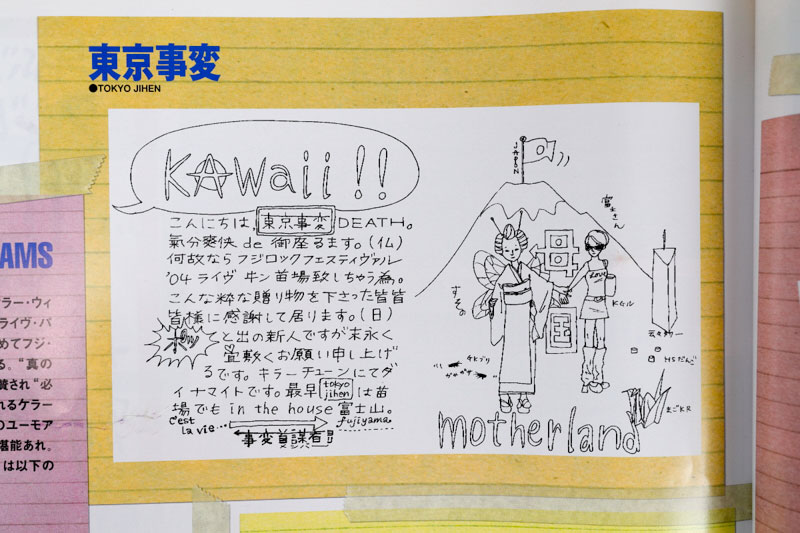 東京事変
●TOKYO JIHEN
KAwaii!!
こんにちは,東京事変DEATH。
氣分爽快de御座るます。(仏)
何故ならフジロックフェスティヴァル
'04ライヴ牛ン苗場致しちゃう為。
こんな粋な贈り物を下さった皆皆
皆様に感謝して居ります。(日)
ポッと出の新人ですが末永く
宜敷くお願い申し上げ
るです。キラーチューンにてダ
イナマイトです。最早tokyo jihenは苗
場でもin the house富士山。
c'est la vie…
fujiyama
事変首謀者
JAPON
富士さん
母国
すその
LOVE
Kギル
GKブリ
HSだんご
まごKR
motherland
AMS
ラー・ウィ
ライヴ・バ
めてフジ・
る。"真の
賛され"必
れるケラー
のユーモア
堪能あれ。
は以下の